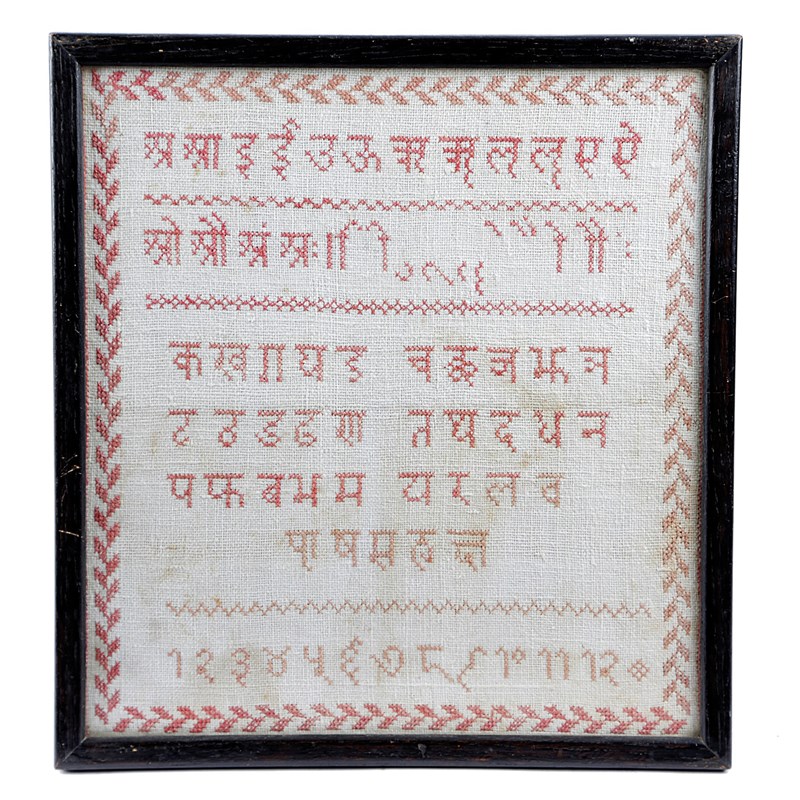 अ आ इ ई उ ऊ ऋ ॠ ऌ ॡ ए ऐ
ओ औ अं अः ॥ ा ि ी ु ू ृ ॄ े ै ो ौ ः
क ख ग घ ङ च छ ज झ ञ
ट ठ ड ढ ण त थ द ध न
प फ ब भ म य र ल व
श ष स ह
१ २ ३ ४ ५ ६ ७ ८ ९ १० ११ १२